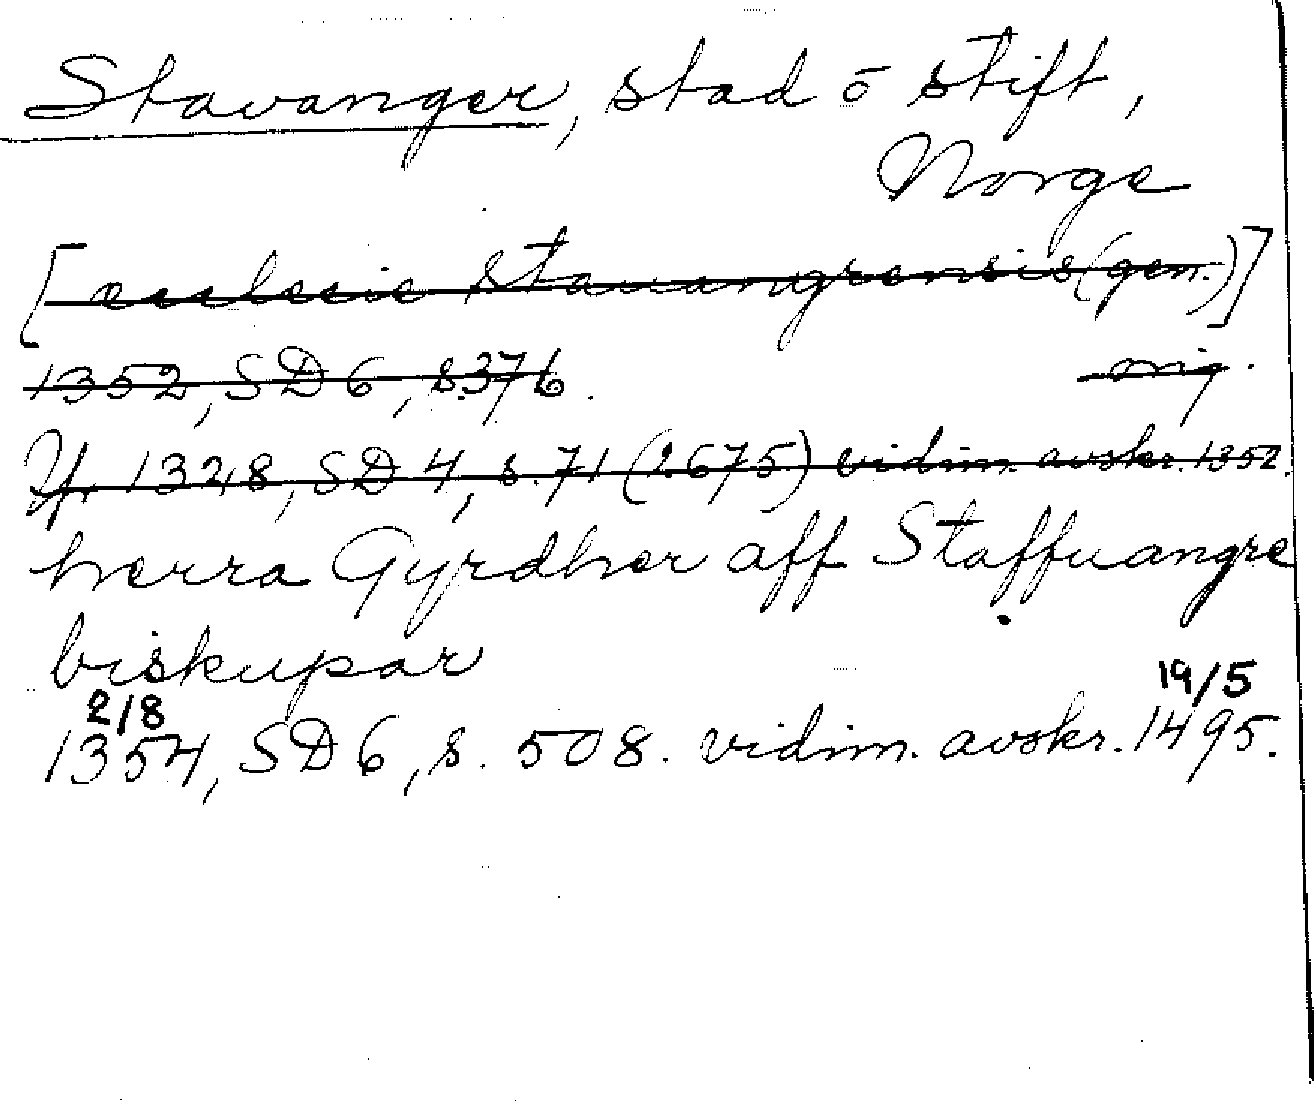 Stavanger, stad o stift,
Norge
[ecclesie Stauangrensis (gen.)]
1352, SD 6, s. 376. orig.
Jf. 1328, SD 4, s. 71 (2675) vidim. avskr. 1352.
herra Gyrdher aff Staffuangre
biskupar
2/8 19/5
1354, SD 6, s. 508. vidim. avskr. 1495.